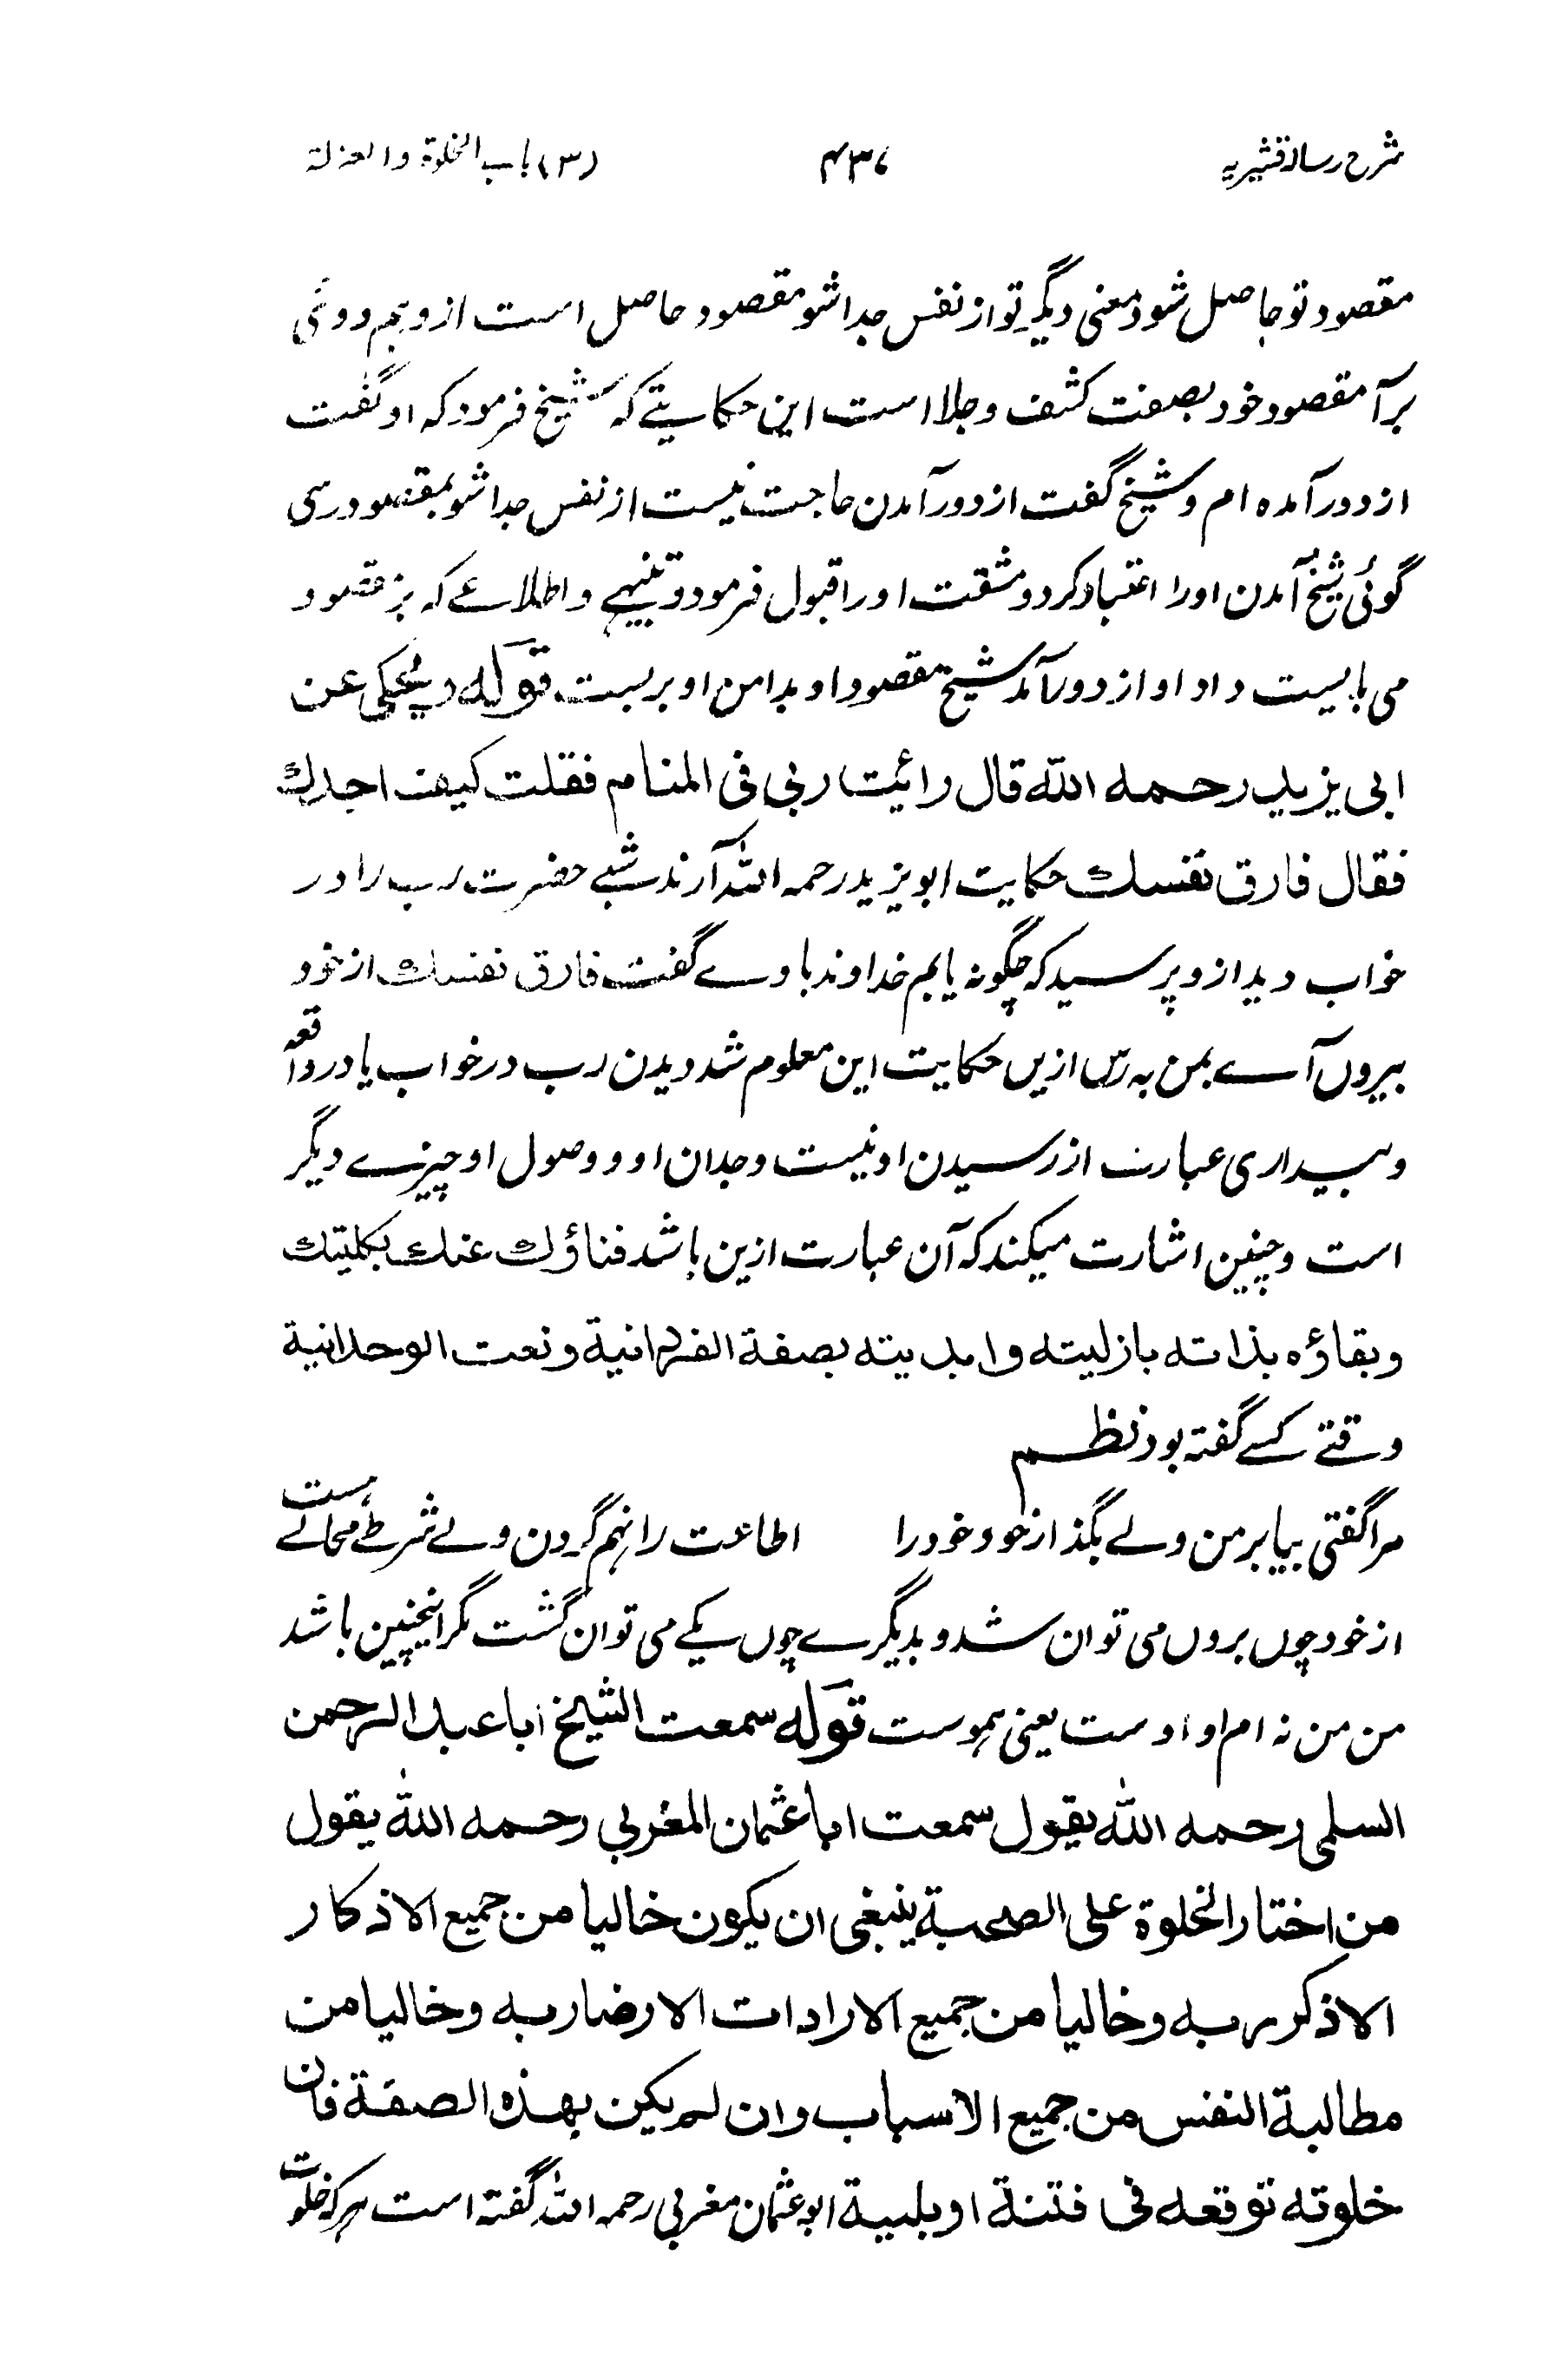 شرح رسالہ قشیریہ ۴۳۷ (۳) باب الخلوة والعزلة
مقصود تو حاصل شود معنی دیگر تو از نفس جدا شو مقصود حاصل است از وہم دوئی
برآ مقصود خود بصفت کشف و جلا است این حکایتے کہ شیخ فرمود کہ او گفت
از دور آمده ام و شیخ گفت از دور آمدن حاجت نیست از نفس جدا شو بمقصود رسی
گوئی شیخ آمدن اورا اعتبار کرد و مشقت اورا قبول فرمود و تنبیہے و اطلاعے کہ بر مقصود
می بایست داد او از دور آمد شیخ مقصود او بدامن او بربست قوله ویحکی عن
ابی یزید رحمه الله قال رائیت ربی فی المنام فقلت کیف اجدك
فقال فارق نفسك حکایت ابو یزید رحمہ اللہ آرند شبے حضرت رب را در
خواب دید ازو پرسید کہ چگونہ یابم خداوندا وے گفت فارق نفسك از خود
بیروں آے بمن برس ازیں حکایت این معلوم شد دیدن رب در خواب یا در واقعہ
و بیداری عبارت از رسیدن او نیست وجدان او و وصول او چیزے دیگر
است و چنین اشارت میکند کہ آن عبارت ازین باشد فناؤك عنك بکلیتك
وبقاؤه بذاته بازلیته وابدیته بصفة الفردانیة ونعت الوحدانیة
وقتے کسے گفتہ بود نظم
مرا گفتی بیا بر من ولے بگذار خود خود را اطاعت را نہم گردن ولے شرطے محالے ہست
از خود چوں بروں می توان شد و بدیگرے چوں یکے می توان گشت مگر اینچنین باشد
من من نہ ام او اوست یعنی ہموست قوله سمعت الشیخ ابا عبد الرحمن
السلمی رحمه الله یقول سمعت ابا عثمان المغربی رحمه الله یقول
من اختار الخلوة علی الصحبة ینبغی ان یکون خالیا من جمیع الاذکار
الا ذکر ربه وخالیا من جمیع الارادات الا رضا ربه وخالیا من
مطالبة النفس من جمیع الاسباب وان لم یکن بهذه الصفة فان
خلوته توقعه فی فتنة او بلیة ابو عثمان مغربی رحمہ اللہ گفتہ است ہرکہ خلوت